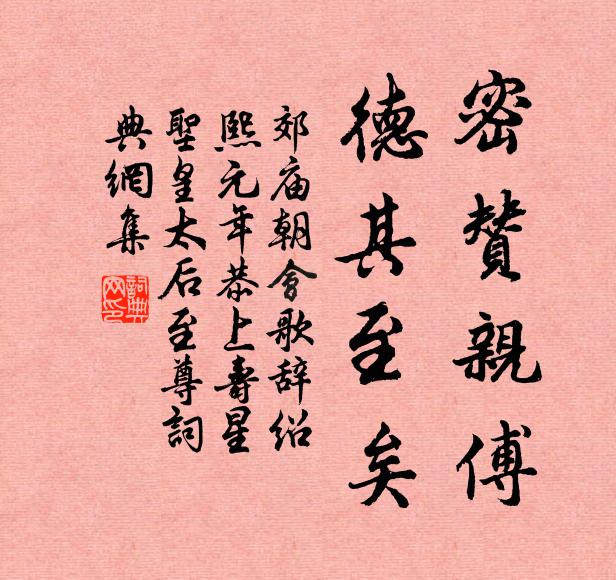 密贊親傅
德其至矣
郊庙朝會歌辞绍
熙元年恭上壽星
聖皇太后至尊詞
典網集
詞典
网印